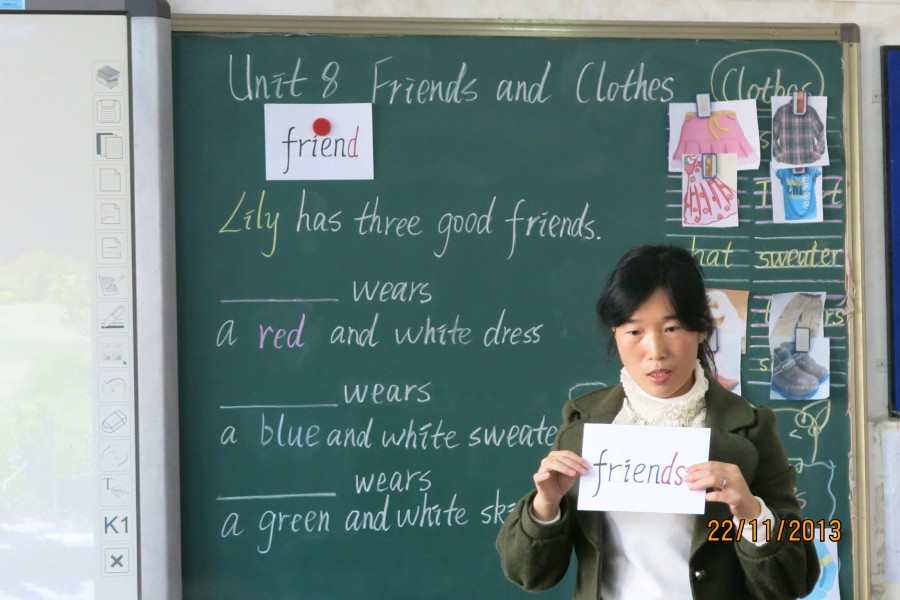 Unit 8 Friends and Clothes
Clothes
friend
Lily has three good friends.
hat sweater
wears
a red and white dress
wears
a blue and white sweate
wears
a green and white sk
friends
22/11/2013
K1